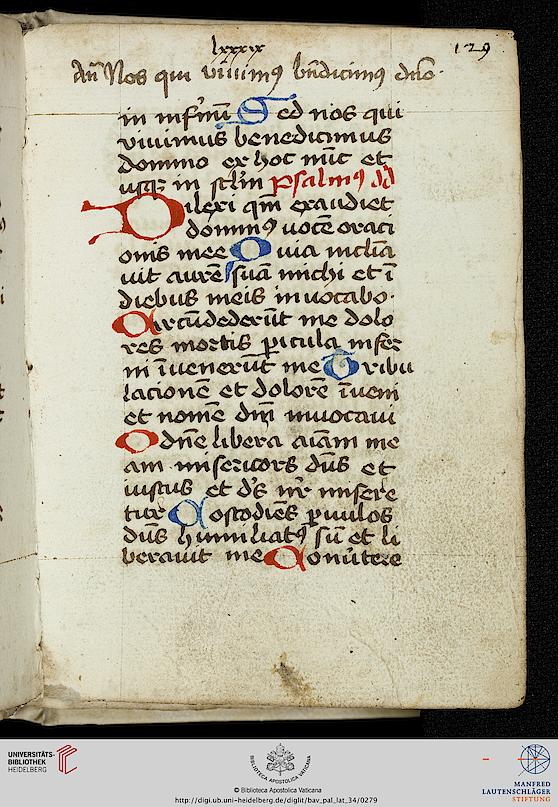 lxxxix
129
Añ Nos qui viuimꝰ bñdicimꝰ dño.
in infñũ Sed nos qui
viuimus benedicimus
domino ex hoc nũc et
usqꝫ in sc̃lm psalmꝰ dd̃
Dilexi qm̃ exaudiet
dominꝰ uocẽ oraci
onis mee Quia inclĩa
uit aurẽ suã michi et ĩ
diebus meis inuocabo.
Circũdederũt me dolo
res mortis picula infer
ni ĩuenerũt me Tribu
lacionẽ et dolorẽ ĩueni
et nomẽ dñi inuocaui
O dñe libera aĩam me
am misericors dñs et
iustus et dˢ nr̃ misere
tur Custodiẽs puulos
dñs humiliatꝰ sũ et li
berauit me Conũtere
UNIVERSITÄTS-
BIBLIOTHEK
HEIDELBERG
BIBLIOTECA APOSTOLICA VATICANA
© Biblioteca Apostolica Vaticana
http://digi.ub.uni-heidelberg.de/diglit/bav_pal_lat_34/0279
MANFRED
LAUTENSCHLÄGER
STIFTUNG